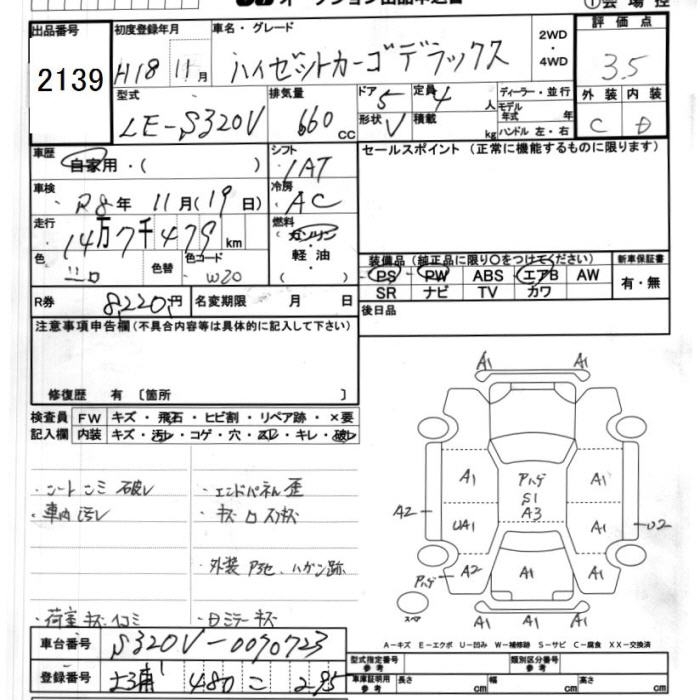 出品番号 初度登録年月 車名・グレード 評価点
2139 H18 11月 ハイゼットカーゴデラックス 2WD・4WD 3.5
型式 排気量 ドア 5 定員 4 人 ディーラー・並行 外装 内装
LE-S320V 660 cc 形状 V 積載 kg モデル年式 年 ハンドル 左・右 C D
車歴 自家用・( ) シフト IAT セールスポイント(正常に機能するものに限ります)
車検 R8年 11月(19日) 冷房 AC
走行 14万7千479km 燃料 (ガソリン 軽・油 ( )
色 シロ 色替 色コード W20 装備品(純正品に限り○をつけてください) 新車保証書
PS PW ABS エアB AW 有・無
SR ナビ TV カワ
R券 8,220円 名変期限 月 日 後日品
注意事項申告欄(不具合内容等は具体的に記入して下さい)
修復歴 有 〔箇所 〕
検査員 FW キズ・飛石・ヒビ割・リペア跡・×要
記入欄 内装 キズ・汚レ・コゲ・穴・スレ・キレ・破レ
・シートシミ 破レ ・エンドパネル歪
・車内汚レ
・外装 Pヨセ、ハガシ跡
・荷室キズ凹コミ ・Dミラーキズ
A1
A1 A1
A1 Pハゲ A1
S1
A2 UA1 A3 A1 U2
Pハゲ A2 A1 A1
スペア A1 A1 A1
A-キズ E-エクボ U-凹み W-補修跡 S-サビ C-腐食 XX-交換済
車台番号 S320V-0070723
型式指定番号 参考 類別区分番号 参考
登録番号 土浦 480 こ 295
車庫証明用 参考 長さ cm 幅 cm 高さ cm